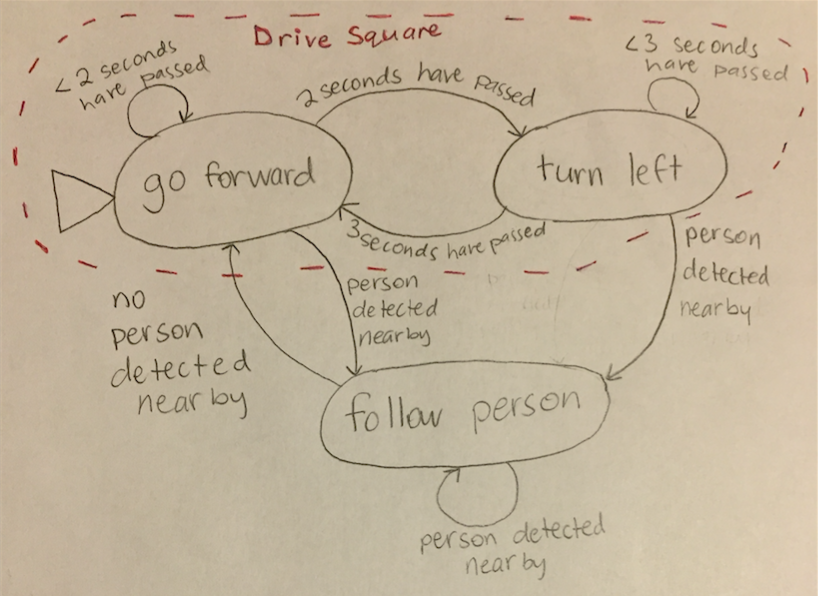 Drive Square
<2 seconds
have passed
2 seconds have passed
<3 seconds
have passed
go forward
turn left
3 seconds have passed
person
detected
nearby
person
detected
nearby
no
person
detected
nearby
follow person
person detected
nearby